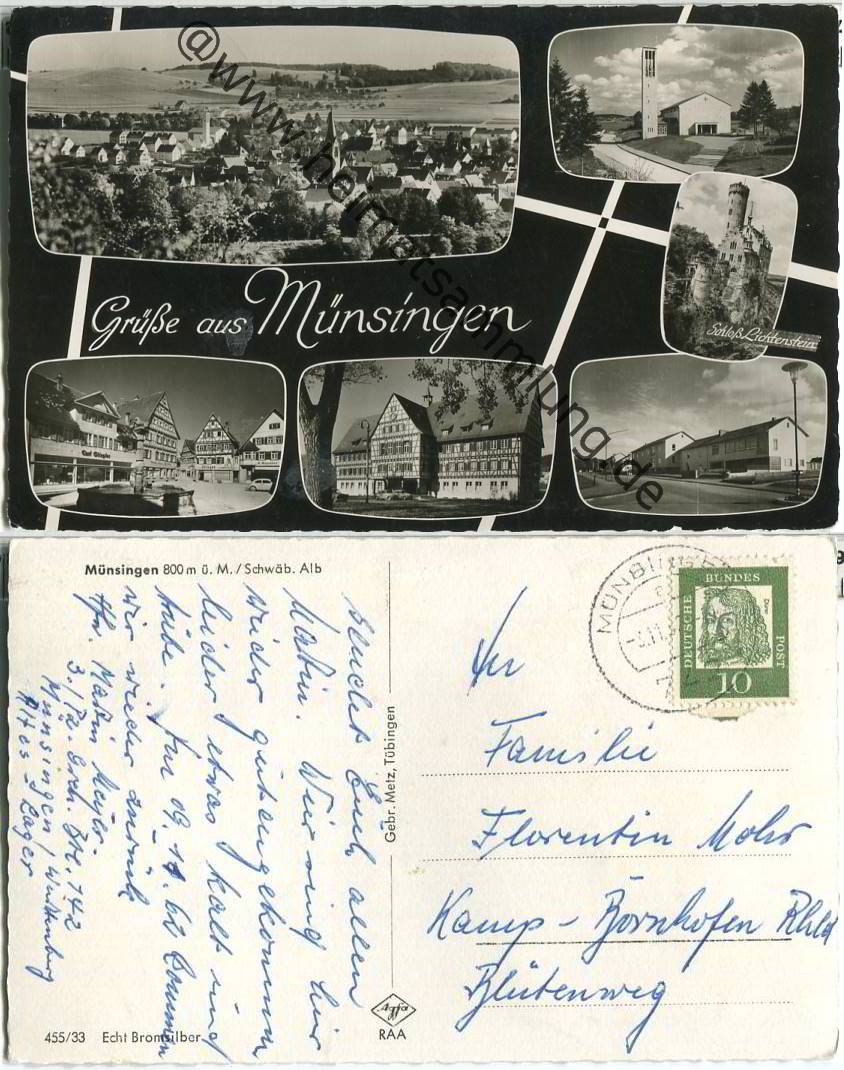 Grüße aus Münsingen
Schloß Lichtenstein
@www.heimatsammlung.de
Münsingen 800 m ü. M. / Schwäb. Alb
sendet Euch allen
Martin. Wir sind hier
wieder gut angekommen
leider etwas kalt und
trübe. Am 09.11.62 kommen
wir wieder zurück
Martin Meyer
3./Pz. Btl. 142
Münsingen / Württemburg
Altes-Lager
Gebr. Metz, Tübingen
Agfa
RAA
455/33 Echt Bromsilber
MÜNSINGEN
DEUTSCHE BUNDESPOST
10
An
Familie
Florentin Mohr
Kamp-Bornhofen Rhld
Blütenweg